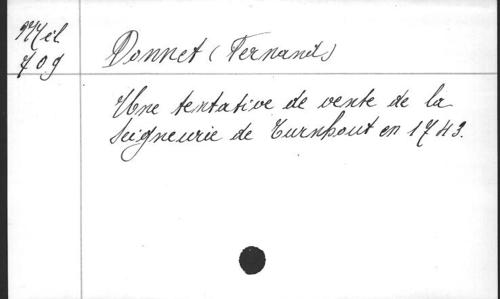 Mél
709
Donnet (Fernand)
Une tentative de vente de la
Seigneurie de Turnhout en 1743.